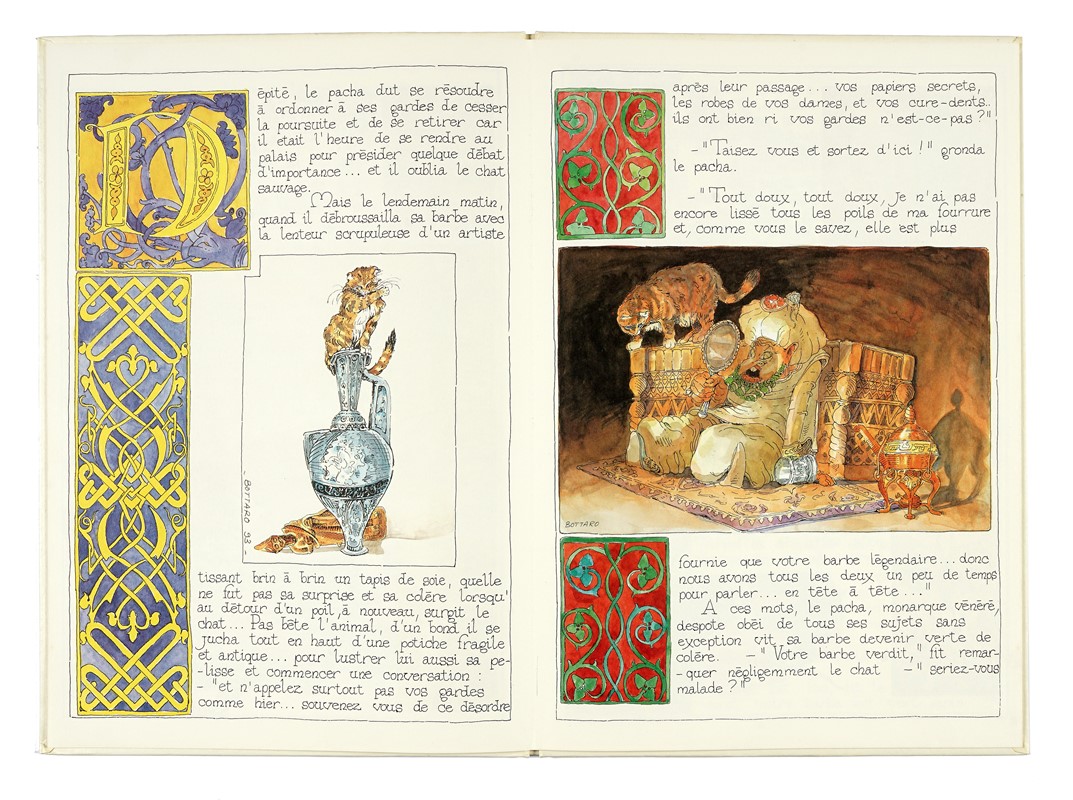 D
épité, le pacha dut se résoudre
à ordonner à ses gardes de cesser
la poursuite et de se retirer car
il était l'heure de se rendre au
palais pour présider quelque débat
d'importance... et il oublia le chat
sauvage.
Mais le lendemain matin,
quand il débroussailla sa barbe avec
la lenteur scrupuleuse d'un artiste
- BOTTARO 93 -
tissant brin à brin un tapis de soie, quelle
ne fut pas sa surprise et sa colère lorsqu'
au détour d'un poil, à nouveau, surgit le
chat... Pas bête l'animal, d'un bond il se
jucha tout en haut d'une potiche fragile
et antique... pour lustrer lui aussi sa pe-
-lisse et commencer une conversation :
- "et n'appelez surtout pas vos gardes
comme hier... souvenez vous de ce désordre
après leur passage... vos papiers secrets,
les robes de vos dames, et vos cure-dents..
ils ont bien ri vos gardes n'est-ce-pas ?"
- "Taisez vous et sortez d'ici !" gronda
le pacha.
- "Tout doux, tout doux, je n'ai pas
encore lissé tous les poils de ma fourrure
et, comme vous le savez, elle est plus
BOTTARO
fournie que votre barbe légendaire... donc
nous avons tous les deux un peu de temps
pour parler... en tête à tête..."
A ces mots, le pacha, monarque vénéré,
despote obéi de tous ses sujets sans
exception vit sa barbe devenir verte de
colère. - "Votre barbe verdit," fit remar-
-quer négligemment le chat - "seriez-vous
malade ?"